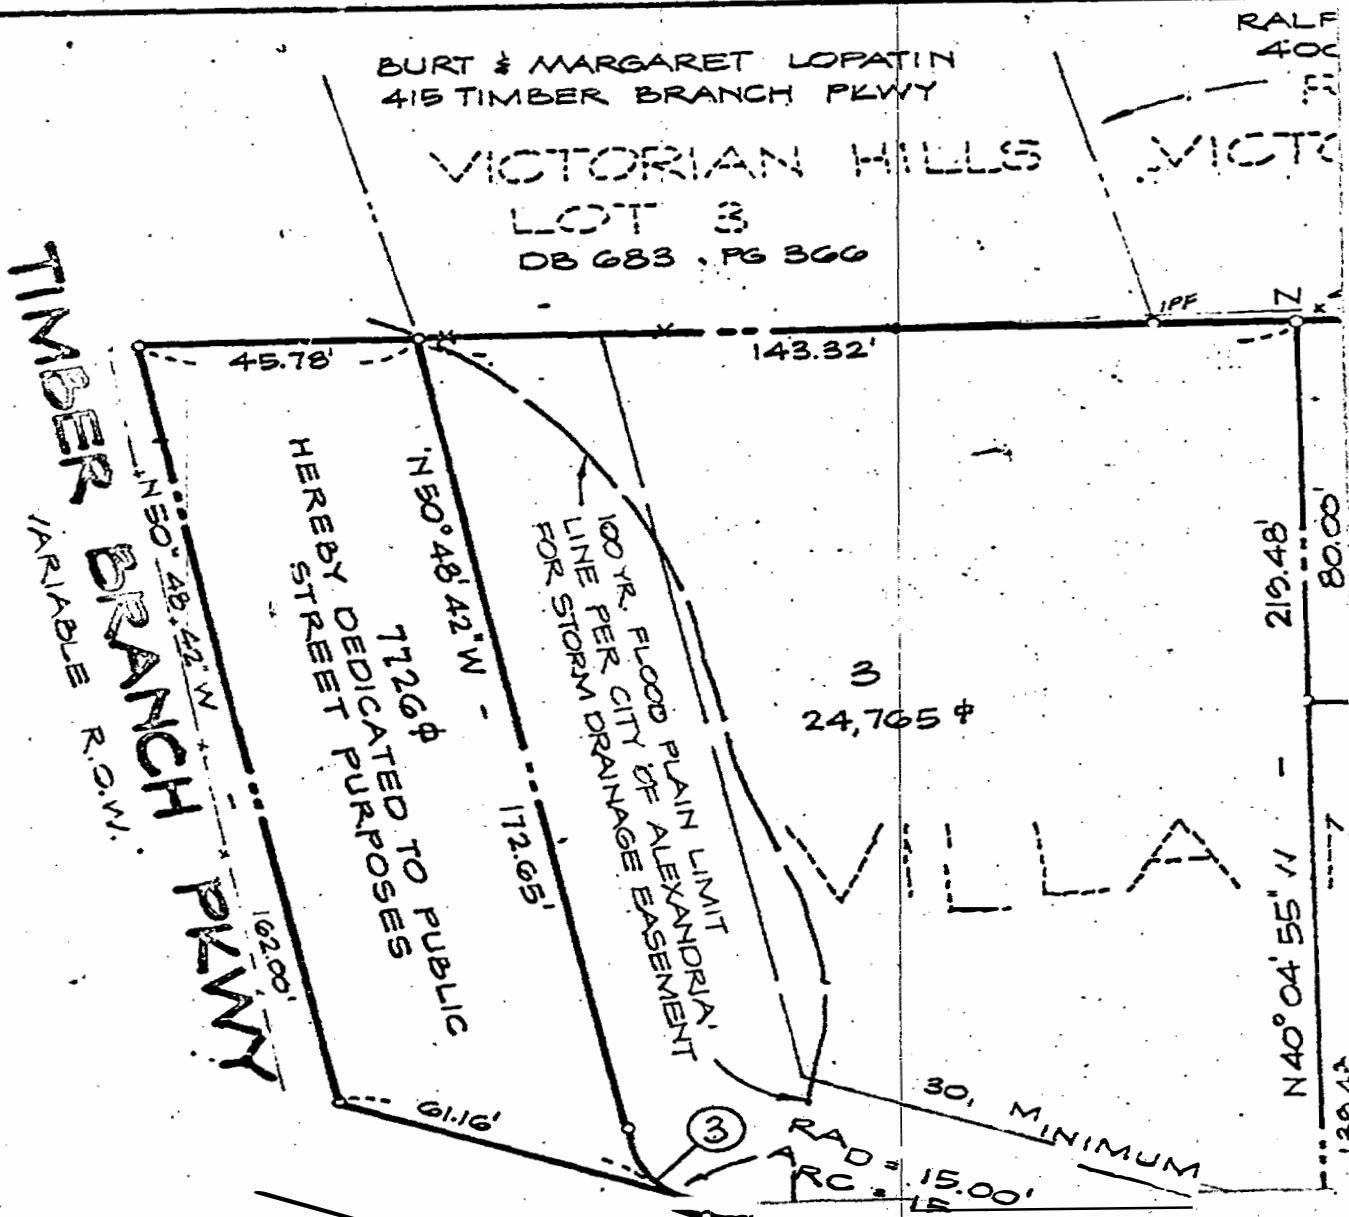 BURT & MARGARET LOPATIN
415 TIMBER BRANCH PKWY
VICTORIAN HILLS
LOT 3
DB 683 . PG 366
RALF
400
VICTO
IPF
45.78'
143.32'
TIMBER BRANCH PKWY
VARIABLE R.O.W.
N50° 48' 42" W
162.00'
HEREBY DEDICATED TO PUBLIC
STREET PURPOSES
7726 ⌽
N50° 48' 42" W - 172.65'
100 YR. FLOOD PLAIN LIMIT
LINE PER CITY OF ALEXANDRIA
FOR STORM DRAINAGE EASEMENT
3
24,765 ⌽
VILLA
N40° 04' 55" W - 219.48'
80.00'
61.16'
3
RAD = 15.00'
ARC =
30' MINIMUM